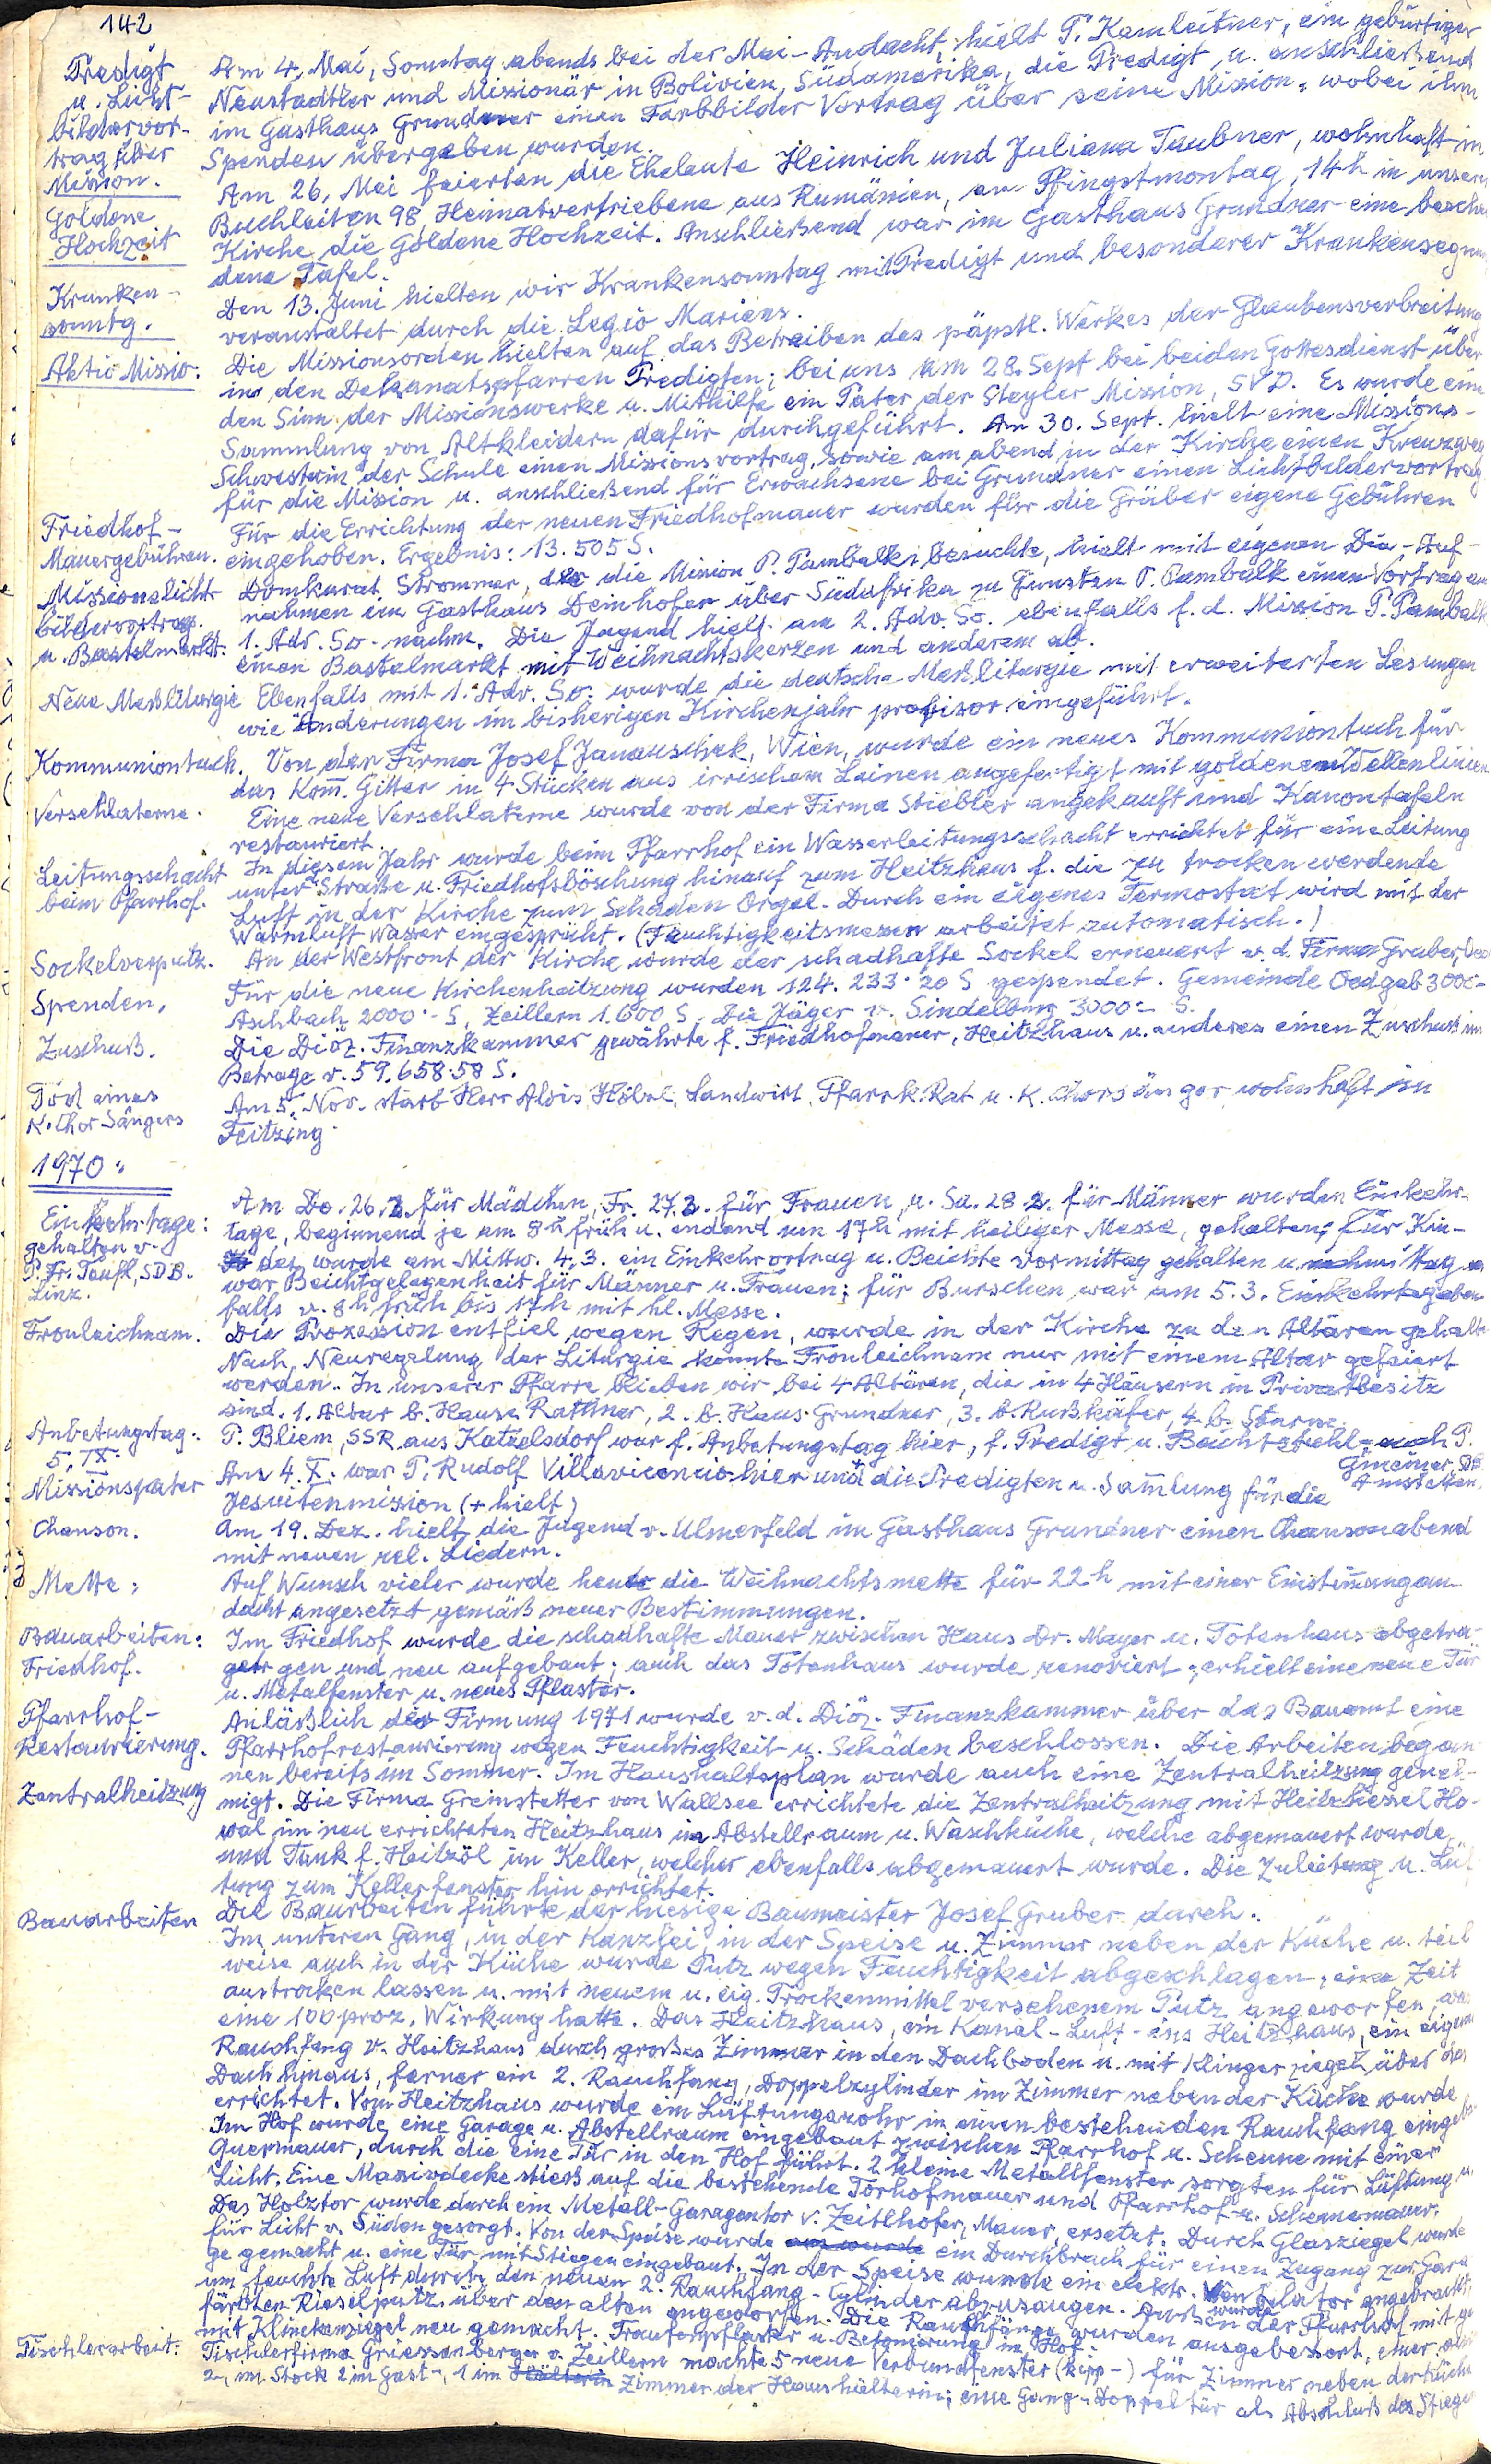 142
Predigt
u. Licht-
bildervor-
trag über
Mission.
Am 4. Mai, Sonntag abends bei der Mai-Andacht, hielt P. Kamleitner, ein gebürtiger
Neustadtler und Missionär in Bolivien, Südamerika, die Predigt u. anschließend
im Gasthaus Grundner einen Farbbilder Vortrag über seine Mission, wobei ihm
Spenden übergeben wurden.
Goldene
Hochzeit
Am 26. Mai feierten die Eheleute Heinrich und Juliana Taubner, wohnhaft in
Buchleiten 98 Heimatvertriebene aus Rumänien, am Pfingstmontag, 14h in unserer
Kirche die Goldene Hochzeit. Anschließend war im Gasthaus Grundner eine beschei
dene Tafel.
Kranken-
sonntg.
Den 13. Juni hielten wir Krankensonntag mit Predigt und besonderer Krankensegnung
veranstaltet durch die Legio Mariens.
Aktio Missio:
Die Missionsorden hielten auf das Betreiben des päpstl. Werkes der Glaubensverbreitung
in den Dekanatspfarren Predigten; bei uns am 28. Sept bei beiden Gottesdienst über
den Sinn der Missionswerke u. Mithilfe ein Pater der Steyler Mission, SVD. Es wurde eine
Sammlung von Altkleidern dafür durchgeführt. Am 30. Sept. hielt eine Missions-
Schwester in der Schule einen Missionsvortrag, sowie am abend in der Kirche einen Kreuzweg
für die Mission u. anschließend für Erwachsene bei Grundner einen Lichtbildervortrag
Friedhof-
Mauergebühren.
Für die Errichtung der neuen Friedhofmauer wurden für die Gräber eigene Gebühren
eingehoben. Ergebnis: 13.505 S.
Missionslicht
bildervortrag.
u. Bastelmarkt:
Domkurat Strommer, der die Mission P. Pambalk besuchte, hielt mit eigenen Dia-Auf-
nahmen im Gasthaus Deinhofer über Südafrika zu Gunsten P. Pambalk einen Vortrag am
1. Adv. So. nachm. Die Jugend hielt am 2. Adv. So. ebenfalls f. d. Mission P. Pambalk
einen Bastelmarkt mit Weihnachtskerzen und anderem ab.
Neue Meßliturgie
Ebenfalls mit 1. Adv. So. wurde die deutsche Meßliturgie mit erweiterten Lesungen
wie Änderungen im bisherigen Kirchenjahr profisor. eingeführt.
Kommuniontuch.
Von der Firma Josef Janauschek, Wien, wurde ein neues Kommuniontuch für
das Kom̄. Gitter in 4 Stücken aus irrischem Leinen angefertigt mit goldenen Wellenlinien
Versehlaterne.
Eine neue Versehlaterne wurde von der Firma Stiebler angekauft und Kanontafeln
restauriert.
Leitungsschacht
beim Pfarrhof.
In diesem Jahr wurde beim Pfarrhof ein Wasserleitungsschacht errichtet für eine Leitung
unter Straße u. Friedhofsböschung hinauf zum Heitzhaus f. die zu trocken werdende
Luft in der Kirche zum Schaden Orgel. Durch ein eigenes Termostat wird mit der
Warmluft Wasser eingesprüht. (Feuchtigkeitsmesser arbeitet automatisch.)
Sockelverputz.
An der Westfront der Kirche wurde der schadhafte Sockel erneuert v. d. Firma Gruber,
Spenden,
Für die neue Kirchenheitzung wurden 124.233·20 S gespendet. Gemeinde Oed gab 3000-
Aschbach 2000·- S, Zeillern 1.600 S. Die Jäger v. Sindelburg 3000·- S.
Zuschuß.
Die Diöz. Finanzkammer gewährte f. Friedhofmauer, Heitzhaus u. anderes einen Zuschuß im
Betrage v. 59.658·58 S.
Tod eines
K. Chor Sängers
Am 5. Nov. starb Herr Alois Hölzl, Landwirt, Pfarrk. Rat u. K. Chorsänger wohnhaft in
Feitzing.
1970:
Einkehrtage:
gehalten v.
P. Fr. Teufl, SDB.
Linz.
Am Do. 26.2. für Mädchen, Fr. 27.2. für Frauen, u. Sa. 28.2. für Männer wurden Einkehr-
tage, beginnend je um 8h früh u. endend um 17h mit heiliger Messe, gehalten; für Kin-
der wurde am Mittw. 4.3. ein Einkehrvortrag u. Beichte vormittag gehalten u. nachmittag
war Beichtgelegenheit für Männer u. Frauen; für Burschen war am 5.3. Einkehrtag eben
falls v. 8h früh bis 17h mit hl. Messe.
Fronleichnam.
Die Prozession entfiel wegen Regen, wurde in der Kirche zu den Altären gehalten
Nach Neuregelung der Liturgie konnte Fronleichnam nur mit einem Altar gefeiert
werden. In unserer Pfarre blieben wir bei 4 Altären, die in 4 Häusern in Privatbesitz
sind. 1. Altar b. Hause Rattner, 2. b. Haus Grundner, 3. b. Rußkäfer, 4. b. Sturm.
Anbetungstag:
5. IX.
P. Bliem, SSR aus Katzelsdorf war f. Anbetungstag hier, f. Predigt u. Beichtstuhl - auch P.
Gmeiner, SDB
Amstetten.
Missionspater
Am 4. X. war P. Rudolf Villavicencio hier und + die Predigten u. Sam̄lung für die
Jesuitenmission (+ hielt)
Chanson.
Am 19. Dez. hielt die Jugend v. Ulmerfeld im Gasthaus Grundner einen Chansonabend
mit neuen rel. Liedern.
Mette:
Auf Wunsch vieler wurde heuer die Weihnachtsmette für 22h mit einer Einstim̄ungan-
dacht angesetzt gemäß neuer Bestimmungen.
Bauarbeiten:
Friedhof.
Im Friedhof wurde die schadhafte Mauer zwischen Haus Dr. Mayer u. Totenhaus abgetra-
gen und neu aufgebaut; auch das Totenhaus wurde renoviert; erhielt eine neue Tür
u. Metalfenster u. neues Pflaster.
Pfarrhof-
Restaurierung.
Anläßlich der Firmung 1971 wurde v. d. Diöz. Finanzkammer über das Bauamt eine
Pfarrhofrestaurierung wegen Feuchtigkeit u. Schäden beschlossen. Die Arbeiten began
Zentralheitzung
nen bereits im Sommer. Im Haushaltsplan wurde auch eine Zentralheitzung geneh-
migt. Die Firma Greinstetter von Wallsee errichtete die Zentralheitzung mit Heitzkessel Ho-
val im neu errichteten Heitzhaus im Abstellraum u. Waschküche, welche abgemauert wurde
und Tank f. Heitzöl im Keller, welcher ebenfalls abgemauert wurde. Die Zuleitung u. Lüf-
tung zum Kellerfenster hin errichtet.
Bauarbeiten
Die Bauarbeiten führte der hiesige Baumeister Josef Gruber durch.
Im unteren Gang, in der Kanzlei, in der Speise u. Zimmer neben der Küche u. teil
weise auch in der Küche wurde Putz wegen Feuchtigkeit abgeschlagen, eine Zeit
austrocken lassen u. mit neuem u. eig. Trockenmittel versehenem Putz angeworfen, was
eine 100proz. Wirkung hatte. Das Heitzhaus, ein Kanal-Luft-ins Heitzhaus, ein eigener
Rauchfang v. Heitzhaus durch großes Zimmer in den Dachboden u. mit Klingerziegel über das
Dach hinaus, ferner ein 2. Rauchfang, Doppelzylinder im Zimmer neben der Küche wurde
errichtet. Vom Heitzhaus wurde ein Lüftungsrohr in einen bestehenden Rauchfang eingeba-
Im Hof wurde eine Garage u. Abstellraum eingebaut zwischen Pfarrhof u. Scheune mit einer
Quermauer, durch die eine Tür in den Hof führt. 2 kleine Metallfenster sorgten für Lüftung u.
Licht. Eine Massivdecke stieß auf die bestehende Torhofmauer und Pfarrhof- u. Scheunemauer.
Das Holztor wurde durch ein Metall-Garagentor v. Zeitlhofer, Mauer, ersetzt. Durch Glasziegel wurde
für Licht v. Süden gesorgt. Von der Speise wurde ein Durchbruch für einen Zugang zur Gara
ge gemacht u. eine Tür mit Stiegen eingebaut. In der Speise wurde ein elektr. Ventilator angebracht
um feuchte Luft durch den neuen 2. Rauchfang-Cylinder abzusaugen. Außen wurde der Pfarrhof mit ge
färbten Rieselputz über den alten angeworfen. Die Rauchfänge wurden ausgebessert, einer
mit Klinkenziegel neu gemacht. Traufenpflaster u. Betonierung im Hof.
Tischlerarbeit:
Tischlerfirma Griessenberger v. Zeillern machte 5 neue Verbundfenster (kipp-) für Zimmer neben der Küche
2-, im Stock 2 im Gast-, 1 im Zimmer der Haushälterin; eine Gang-Doppeltür als Abschluß des Stiegen